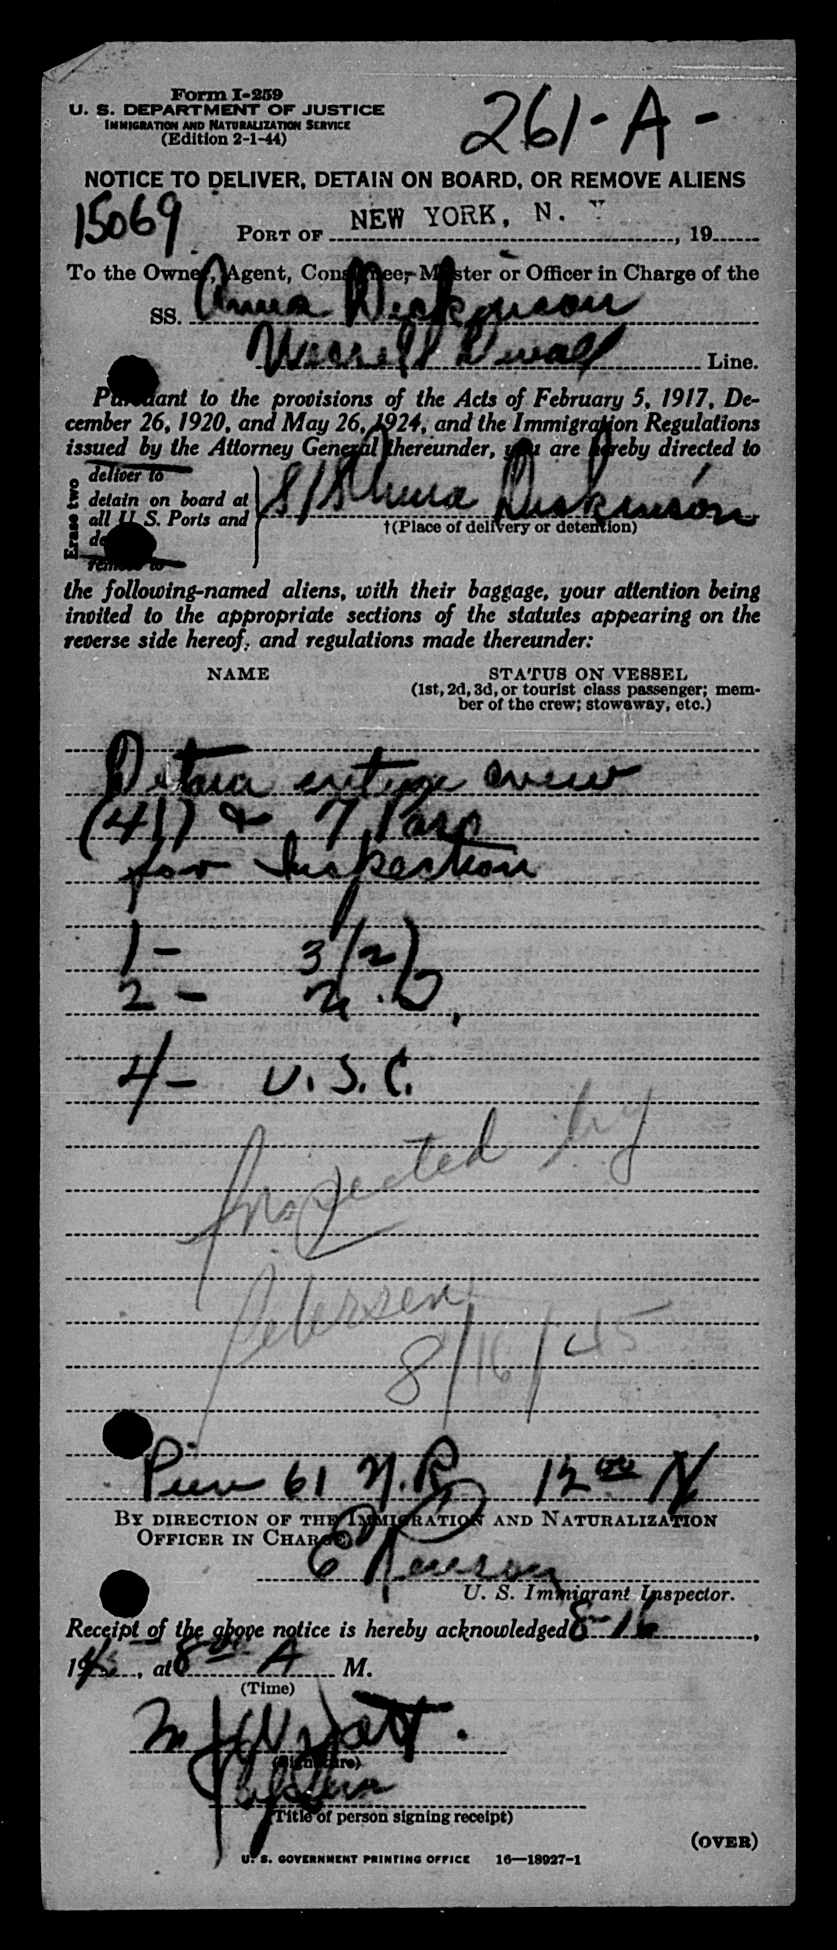 Form I-259
U. S. DEPARTMENT OF JUSTICE
IMMIGRATION AND NATURALIZATION SERVICE
(Edition 2-1-44)
261-A-
NOTICE TO DELIVER, DETAIN ON BOARD, OR REMOVE ALIENS
15069
PORT OF NEW YORK, N. Y , 19
To the Owner, Agent, Consignee, Master or Officer in Charge of the
SS. Anna Dickinson
Line.
Pursuant to the provisions of the Acts of February 5, 1917, De-
cember 26, 1920, and May 26, 1924, and the Immigration Regulations
issued by the Attorney General thereunder, you are hereby directed to
Erase two
deliver to
detain on board at
all U. S. Ports and
remove to
S/S Anna Dickinson
†(Place of delivery or detention)
the following-named aliens, with their baggage, your attention being
invited to the appropriate sections of the statutes appearing on the
reverse side hereof, and regulations made thereunder:
NAME
STATUS ON VESSEL
(1st, 2d, 3d, or tourist class passenger; mem-
ber of the crew; stowaway, etc.)
Detain entire crew
(41) & 7 Pass
for Inspection
1 - 3(2)
2 -
4 - U.S.C.
Inspected by
Petersen
8/16/45
Pier 61 N.R. 12 00 N
BY DIRECTION OF THE IMMIGRATION AND NATURALIZATION
OFFICER IN CHARGE
U. S. Immigrant Inspector.
Receipt of the above notice is hereby acknowledged 8-16,
1945, at 8 00 A M.
(Time)
Wyatt.
(Signature)
(Title of person signing receipt)
(OVER)
U. S. GOVERNMENT PRINTING OFFICE 16—18927-1